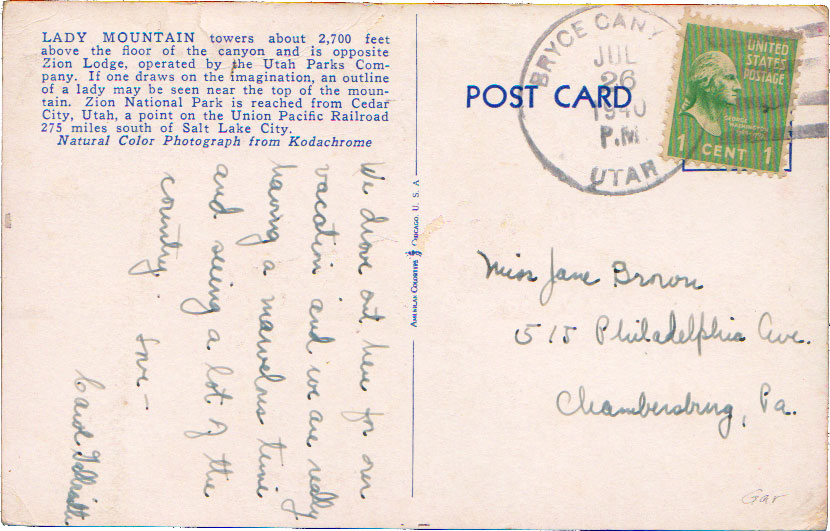 LADY MOUNTAIN towers about 2,700 feet
above the floor of the canyon and is opposite
Zion Lodge, operated by the Utah Parks Com-
pany. If one draws on the imagination, an outline
of a lady may be seen near the top of the moun-
tain. Zion National Park is reached from Cedar
City, Utah, a point on the Union Pacific Railroad
275 miles south of Salt Lake City.
Natural Color Photograph from Kodachrome
We drove out here for our
vacation and we are really
having a marvelous time
and seeing a lot of the
country.
Love—
Carol
AMERICAN COLORTYPE CHICAGO, U. S. A.
POST CARD
BRYCE CANY
JUL
26
1940
P.M.
UTAH
UNITED
STATES
POSTAGE
GEORGE
WASHINGTON
1 CENT 1
Miss Jane Brown
515 Philadelphia Ave.
Chambersburg, Pa.
Gar